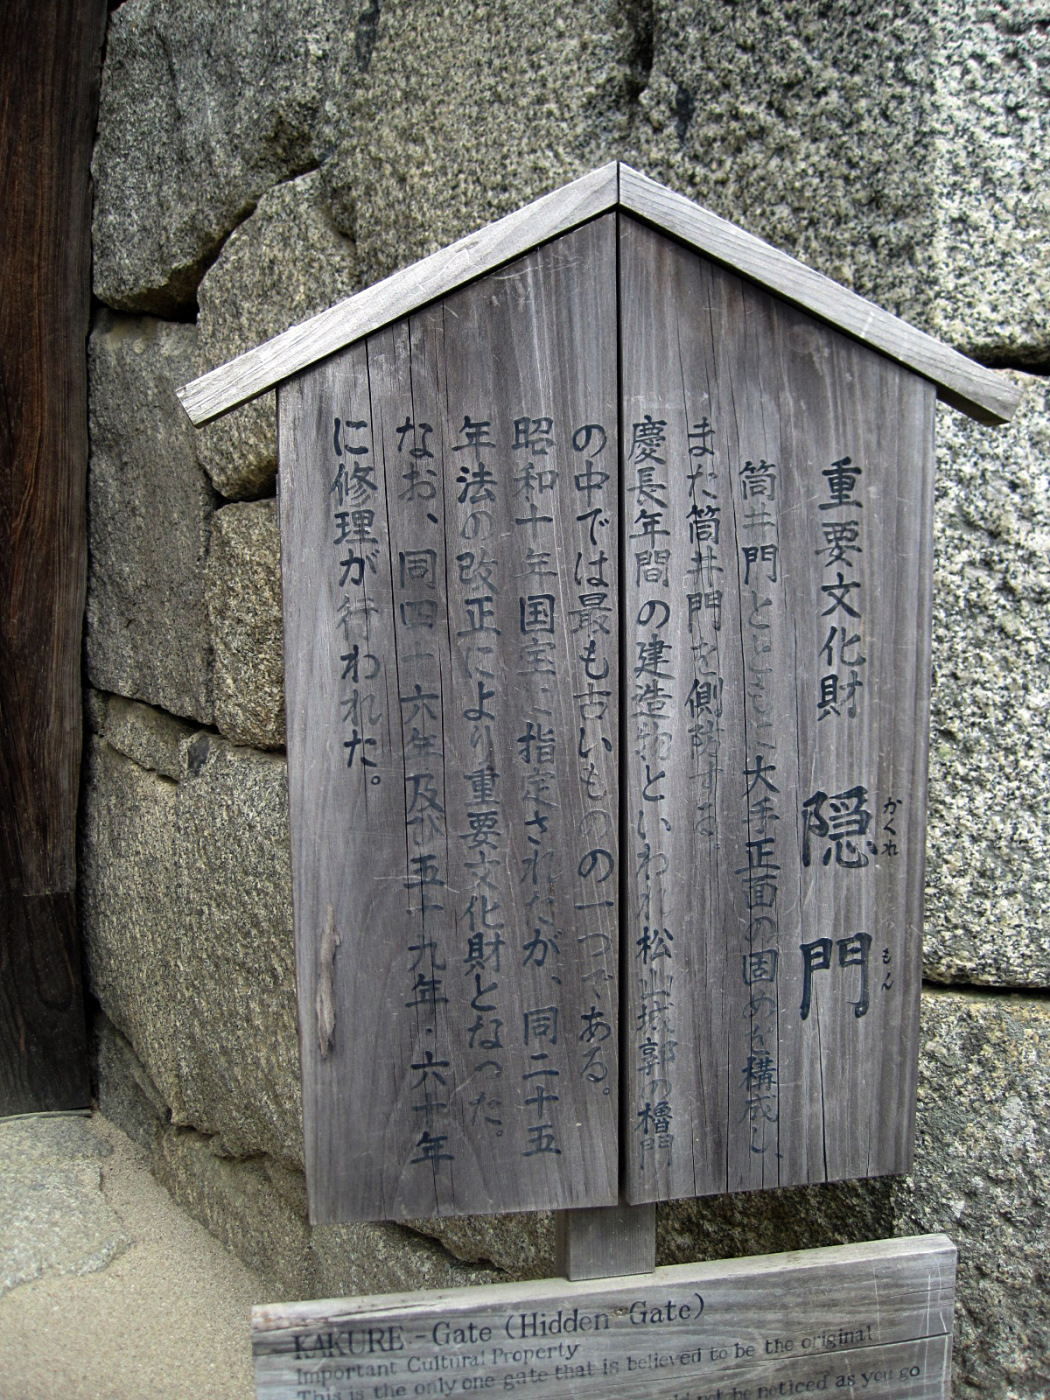 重要文化財 隠門
かくれ もん
筒井門とともに大手正面の固めを構成し、
また筒井門を側防する
慶長年間の建造物といわれ松山城郭の櫓門
の中では最も古いものの一つである。
昭和十年国宝に指定されたが、同二十五
年法の改正により重要文化財となった。
なお、同四十六年及び五十九年・六十年
に修理が行われた。
KAKURE-Gate (Hidden-Gate)
Important Cultural Property
This is the only one gate that is believed to be the original
not be noticed as you go